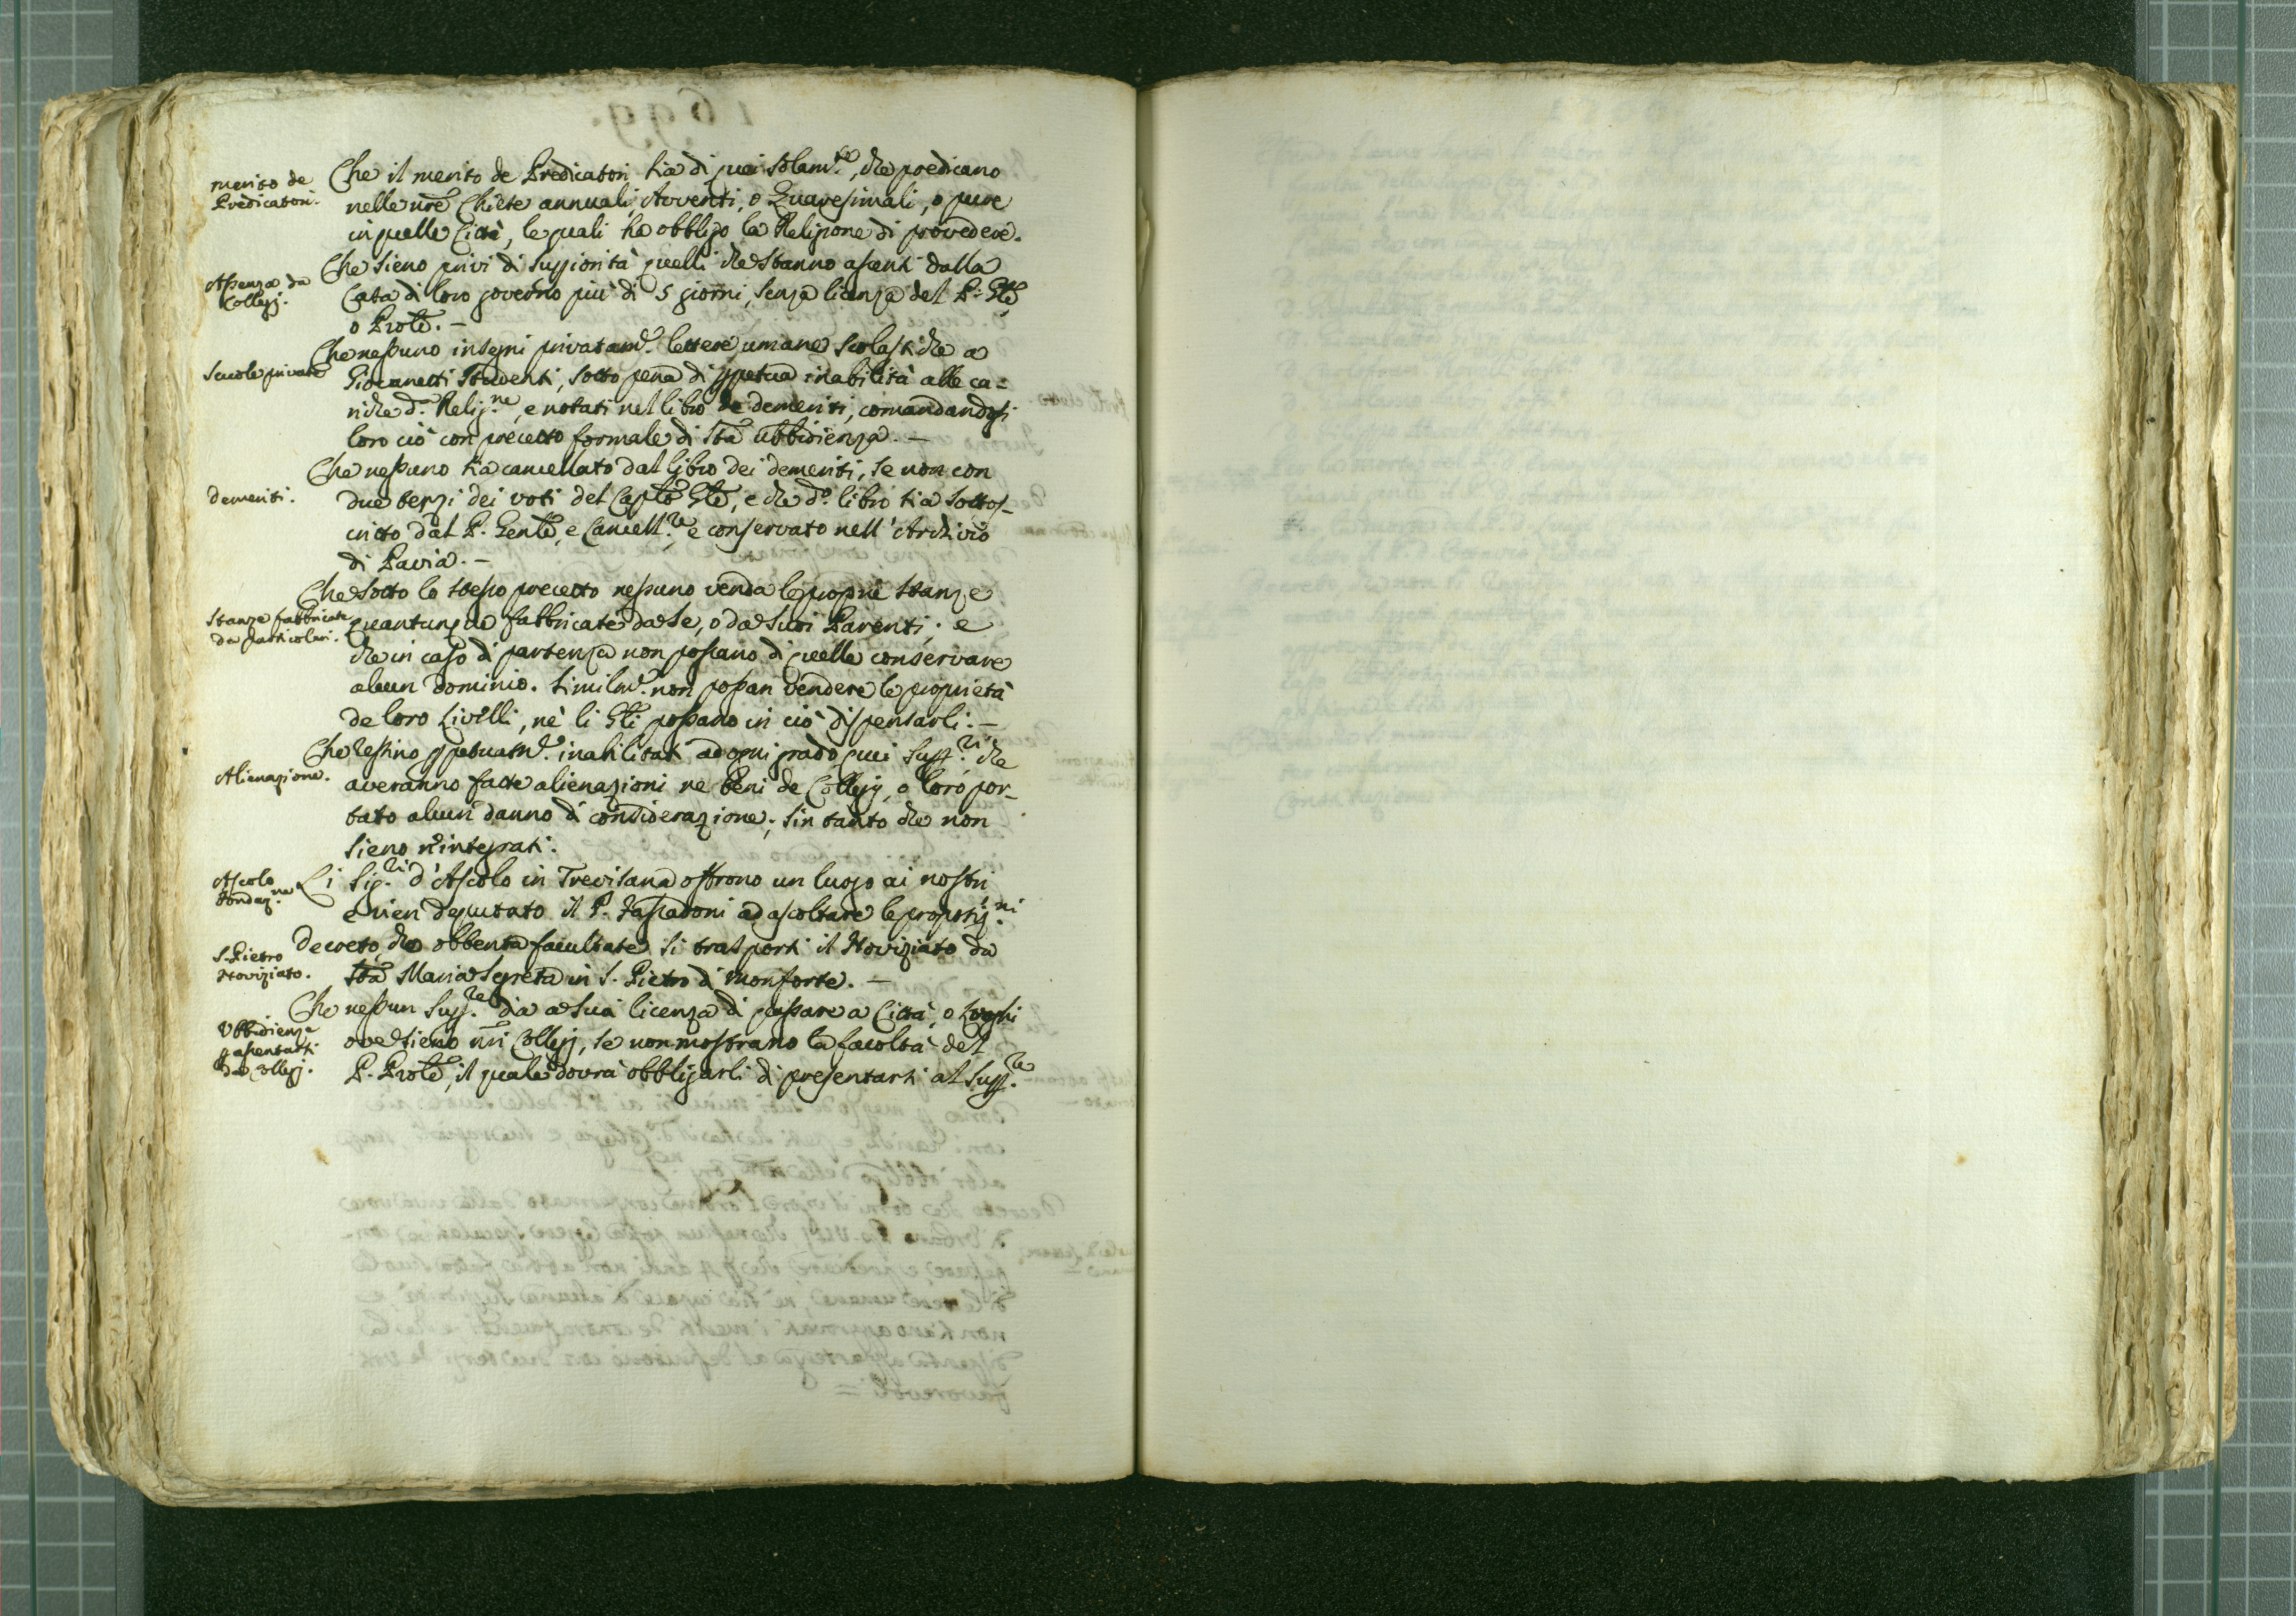 merito de
Predicatori.
Che il merito de Predicatori sia di quei solam.te, che predicano
nelle nre Chiese annuali Avventi, o Quaresimali, o pure
in quelle Città, le quali ha obbligo la Religione di provedere.
Assenza da
Collegj.
Che sieno privi di suppiorità quelli che stanno assenti dalla
Casa di loro governo più di 5 giorni, senza licenza del P. Gle
o Prole. –
Scuole private
Che nessuno insegni privatam.e lettere umane scolastiche a
Giovanetti Studenti, sotto pena di ppetua inabilità alle ca=
riche d.a Relig.ne, e notati nel libro de demeriti, comandandosi
loro ciò con precetto formale di Sta Ubbidienza. –
demeriti.
Che nessuno sia cancellato dal libro dei demeriti, se non con
due terzi dei voti del Caplo Gle, e che d.o libro sia sottos-
critto dal P. Genle, e Cancell.re, e conservato nell'Archivio
di Pavia. –
Stanze fabbricate
da particolari.
Che sotto lo stesso precetto nessuno venda le proprie stanze
quantunque fabbricate da se, o da suoi Parenti; e
che in caso di partenza non possano di quelle conservare
alcun dominio. Similm.e non possan vendere le proprietà
de loro Livelli, nè li Gli possano in ciò dispensarli. –
Alienazione.
Che restino ppetuam.e inabilitati ad ogni grado quei Supp.ri che
averanno fatte alienazioni ne beni de Collegj, o loro por-
tato alcun danno di considerazione; sin tanto che non
sieno rintegrati.
Ascolo
fondaz.ne
Li Sig.ri d'Ascolo in Trevisana offrono un luogo ai nostri
e vien deputato il P. Fassadoni ad ascoltare le proposiz.ni
S. Pietro
Noviziato.
Decreto, che obtenta facultate si trasporti il Noviziato da
Sta Maria Segreta in S. Pietro di Monforte. –
Ubbidienza
p assentarsi
da Collegj.
Che nessun Supp.re dia a suoi licenza di passare a Città, o luoghi
ove sieno nri Collegj, se non mostrano la facoltà del
P. Prole, il quale dovrà obbligarli di presentarsi al Supp.re